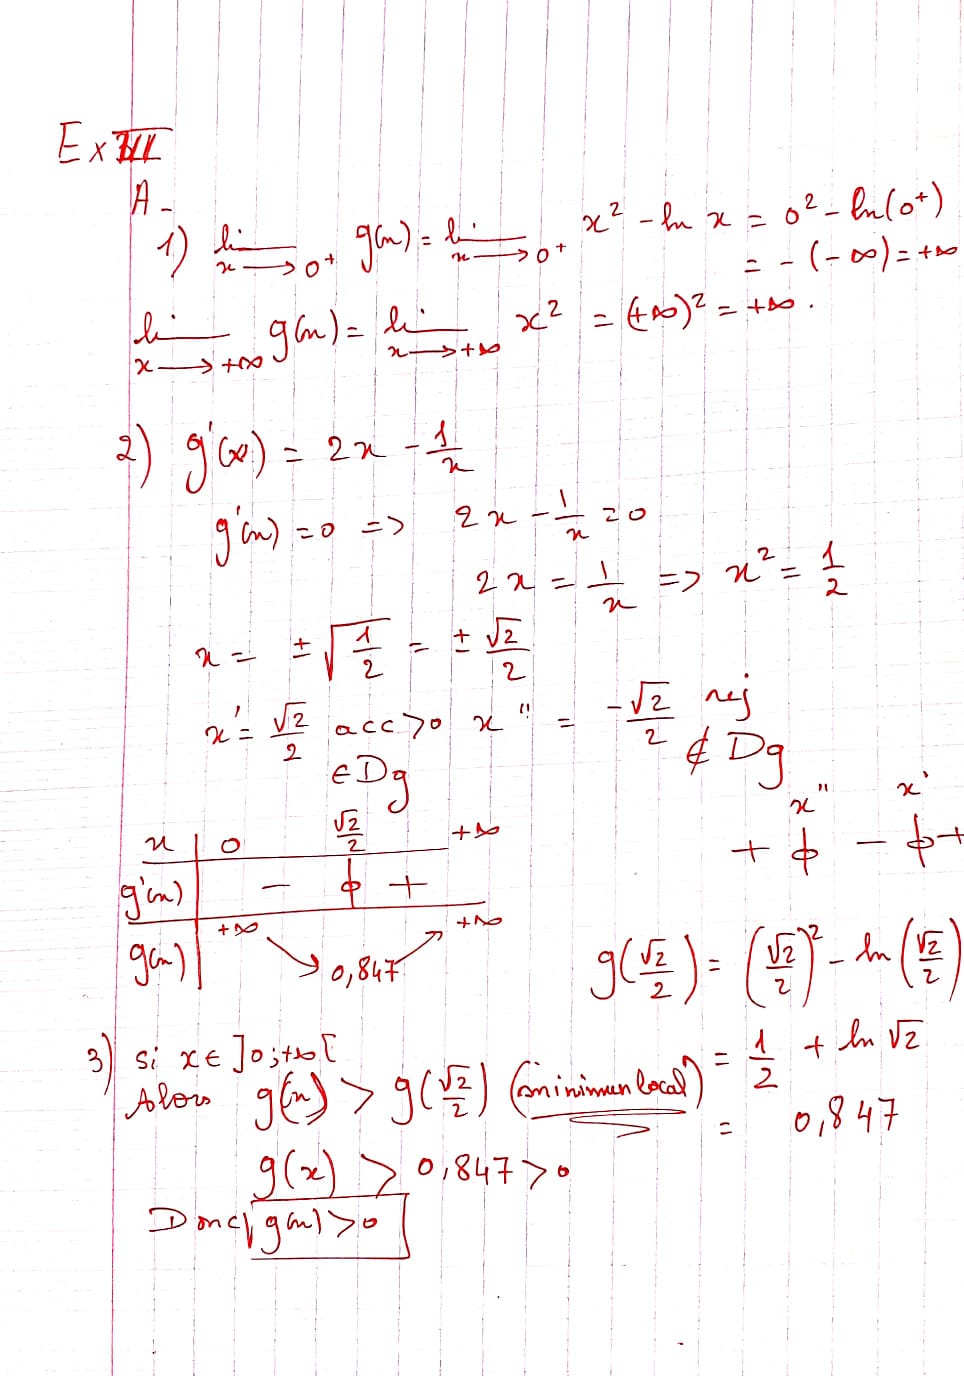 Ex III
A -
1) lim x→0+ g(x) = lim x→0+ x² - ln x = 0² - ln(0+)
= - (-∞) = +∞
lim x→+∞ g(x) = lim x→+∞ x² = (+∞)² = +∞.
2) g'(x) = 2x - 1/x
g'(x) = 0 => 2x - 1/x = 0
2x = 1/x => x² = 1/2
x = ± √(1/2) = ± √2/2
x' = √2/2 acc > 0 x'' = -√2/2 rej
∈ Dg ∉ Dg
x'' x'
+ 0 - 0 +
x 0 √2/2 +∞
g'(x) - 0 +
g(x) +∞ ↘ 0,847 ↗ +∞
g(√2/2) = (√2/2)² - ln(√2/2)
= 1/2 + ln √2
= 0,847
3) si x ∈ ]0;+∞[
Alors g(x) > g(√2/2) (minimum local)
g(x) > 0,847 > 0
Donc g(x) > 0